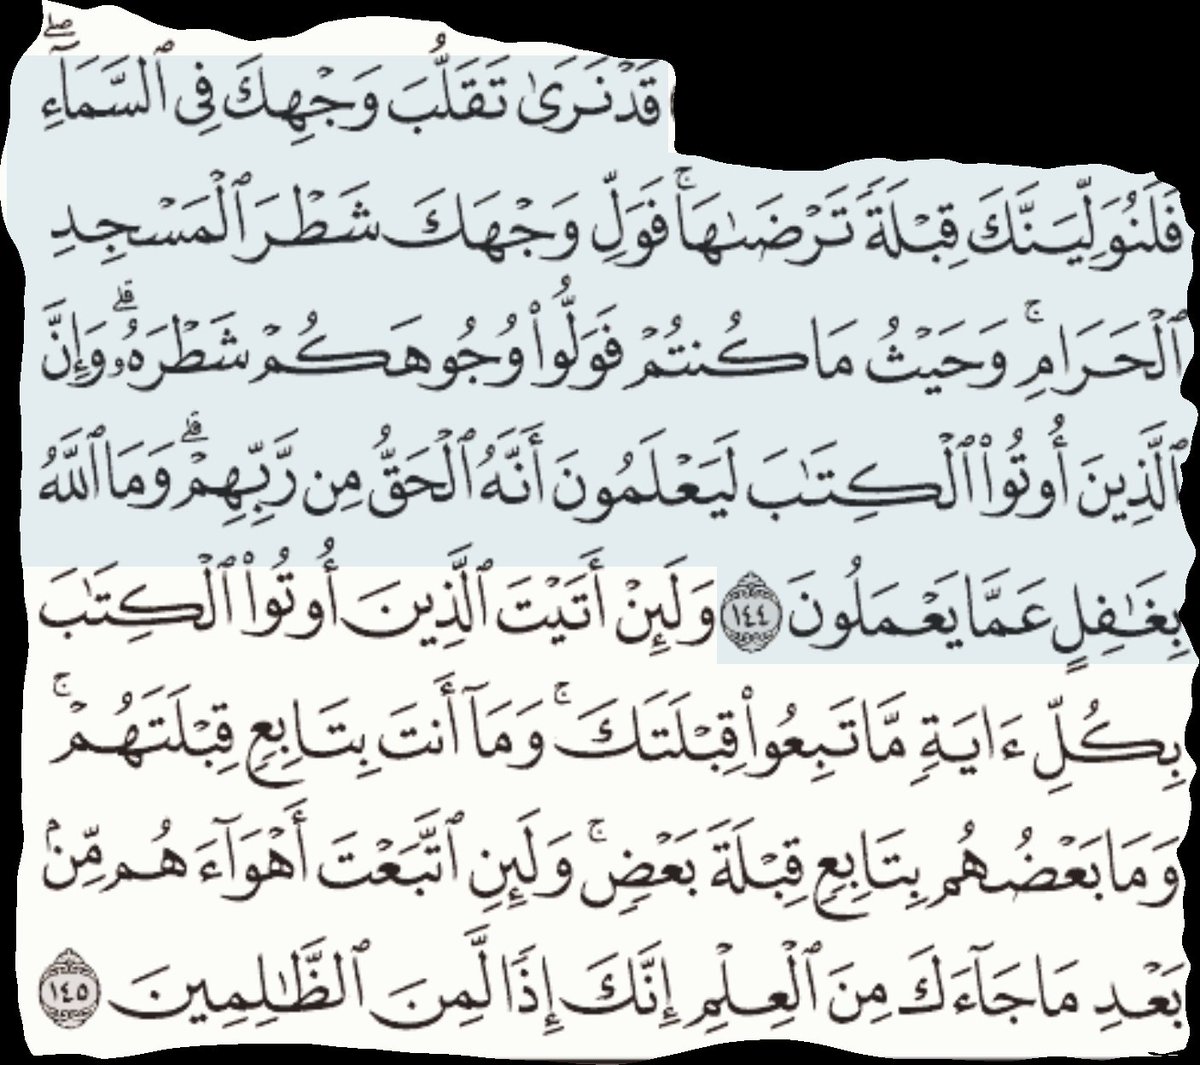 قَدْ نَرَىٰ تَقَلُّبَ وَجْهِكَ فِى ٱلسَّمَآءِ ۖ
فَلَنُوَلِّيَنَّكَ قِبْلَةً تَرْضَىٰهَا ۚ فَوَلِّ وَجْهَكَ شَطْرَ ٱلْمَسْجِدِ
ٱلْحَرَامِ ۚ وَحَيْثُ مَا كُنتُمْ فَوَلُّوا۟ وُجُوهَكُمْ شَطْرَهُۥ ۗ وَإِنَّ
ٱلَّذِينَ أُوتُوا۟ ٱلْكِتَـٰبَ لَيَعْلَمُونَ أَنَّهُ ٱلْحَقُّ مِن رَّبِّهِمْ ۗ وَمَا ٱللَّهُ
بِغَـٰفِلٍ عَمَّا يَعْمَلُونَ ١٤٤ وَلَئِنْ أَتَيْتَ ٱلَّذِينَ أُوتُوا۟ ٱلْكِتَـٰبَ
بِكُلِّ ءَايَةٍ مَّا تَبِعُوا۟ قِبْلَتَكَ ۚ وَمَآ أَنتَ بِتَابِعٍ قِبْلَتَهُمْ ۚ
وَمَا بَعْضُهُم بِتَابِعٍ قِبْلَةَ بَعْضٍ ۚ وَلَئِنِ ٱتَّبَعْتَ أَهْوَآءَهُم مِّنۢ
بَعْدِ مَا جَآءَكَ مِنَ ٱلْعِلْمِ إِنَّكَ إِذًا لَّمِنَ ٱلظَّـٰلِمِينَ ١٤٥